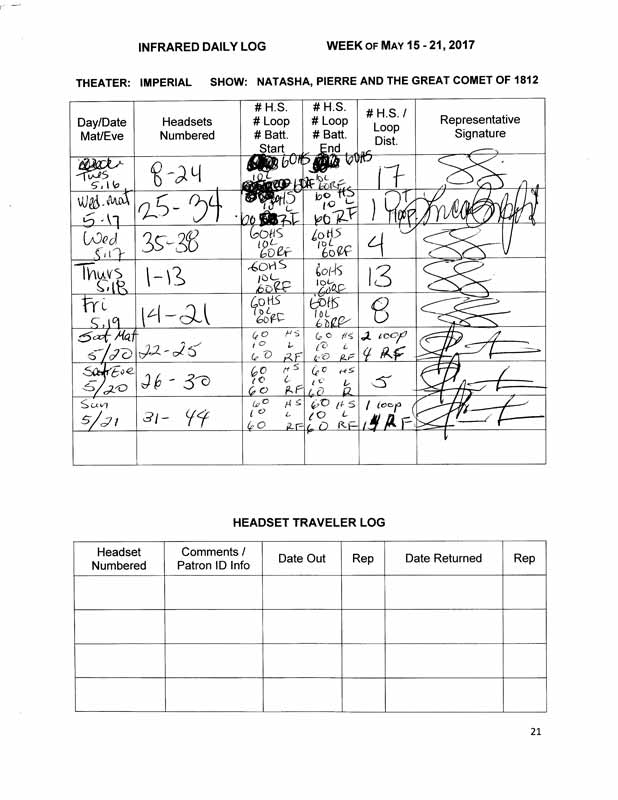 INFRARED DAILY LOG WEEK OF MAY 15 - 21, 2017
THEATER: IMPERIAL SHOW: NATASHA, PIERRE AND THE GREAT COMET OF 1812
Day/Date Mat/Eve
Headsets Numbered
# H.S. # Loop # Batt. Start
# H.S. # Loop # Batt. End
# H.S. / Loop Dist.
Representative Signature
Tues 5.16 8-24 60HS 10L 60RF 60HS 10L 60RF 17
Wed. mat 5.17 25-34 10HS 60 RF 60 HS 10 L 60 RF
Wed 5.17 35-38 60HS 10L 60RF 60HS 10L 60RF 4
Thurs 5.18 1-13 60HS 10L 60RF 60HS 10L 60RF 13
Fri 5.19 14-21 60HS 10L 60RF 60HS 10L 60RF 8
Sat Mat 5/20 22-25 60 HS 10 L 60 RF 60 HS 10 L 60 RF 2 loop 4 RF
Sat Eve 5/20 26-30 60 HS 10 L 60 RF 60 HS 10 L 60 R 5
Sun 5/21 31-44 60 HS 10 L 60 RF 60 HS 10 L 60 RF 1 loop RF
HEADSET TRAVELER LOG
Headset Numbered
Comments / Patron ID Info
Date Out
Rep
Date Returned
Rep
21